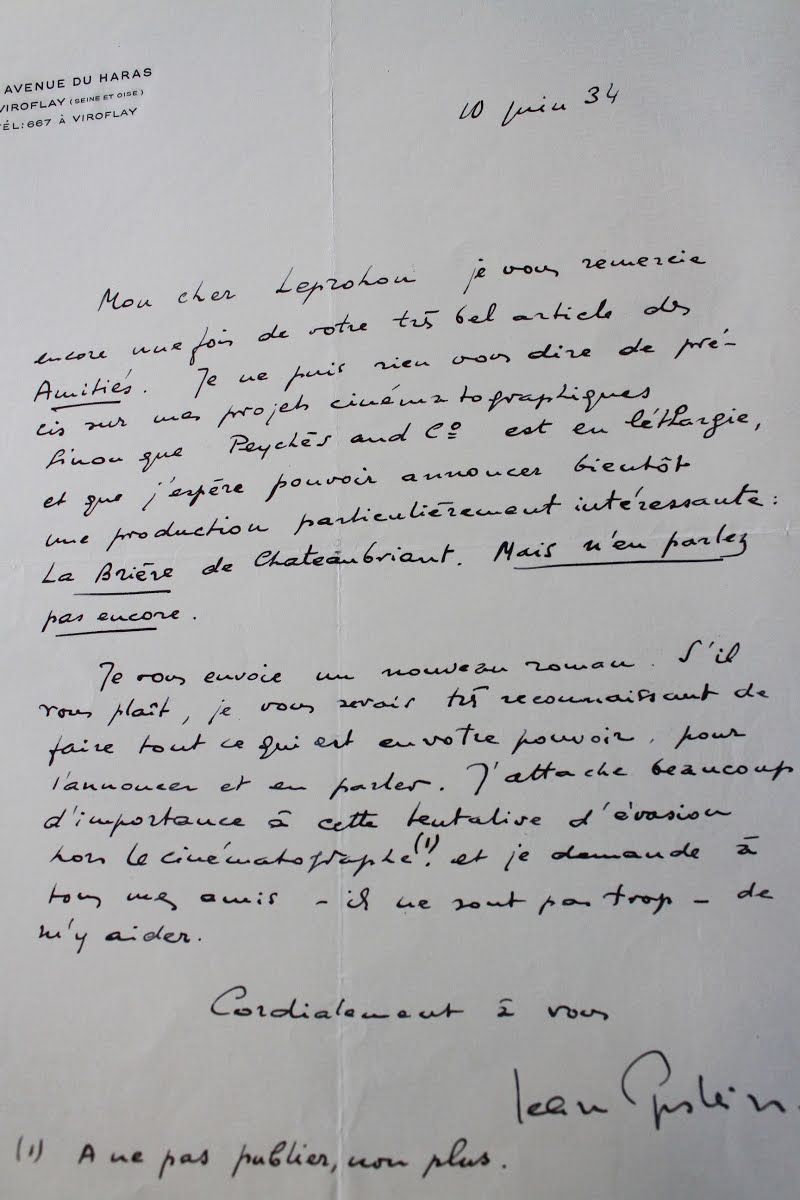 AVENUE DU HARAS
VIROFLAY (SEINE ET OISE)
TÉL: 667 À VIROFLAY
10 juin 34
Mon cher Leprohon je vous remercie
encore une fois de votre très bel article des
Amitiés. Je ne puis rien vous dire de pré-
cis sur mes projets cinématographiques
sinon que Psychés and Cº est en léthargie,
et que j'espère pouvoir annoncer bientôt
une production particulièrement intéressante :
La Brière de Chateaubriant. Mais n'en parlez
pas encore.
Je vous envoie un nouveau roman. S'il
vous plaît, je vous serais très reconnaissant de
faire tout ce qui est en votre pouvoir, pour
l'annoncer et en parler. J'attache beaucoup
d'importance à cette tentative d'évasion
hors le cinématographe (1). et je demande à
tous mes amis - ils ne sont pas trop - de
m'y aider.
Cordialement à vous
Jean Epstein.
(1) A ne pas publier, non plus.